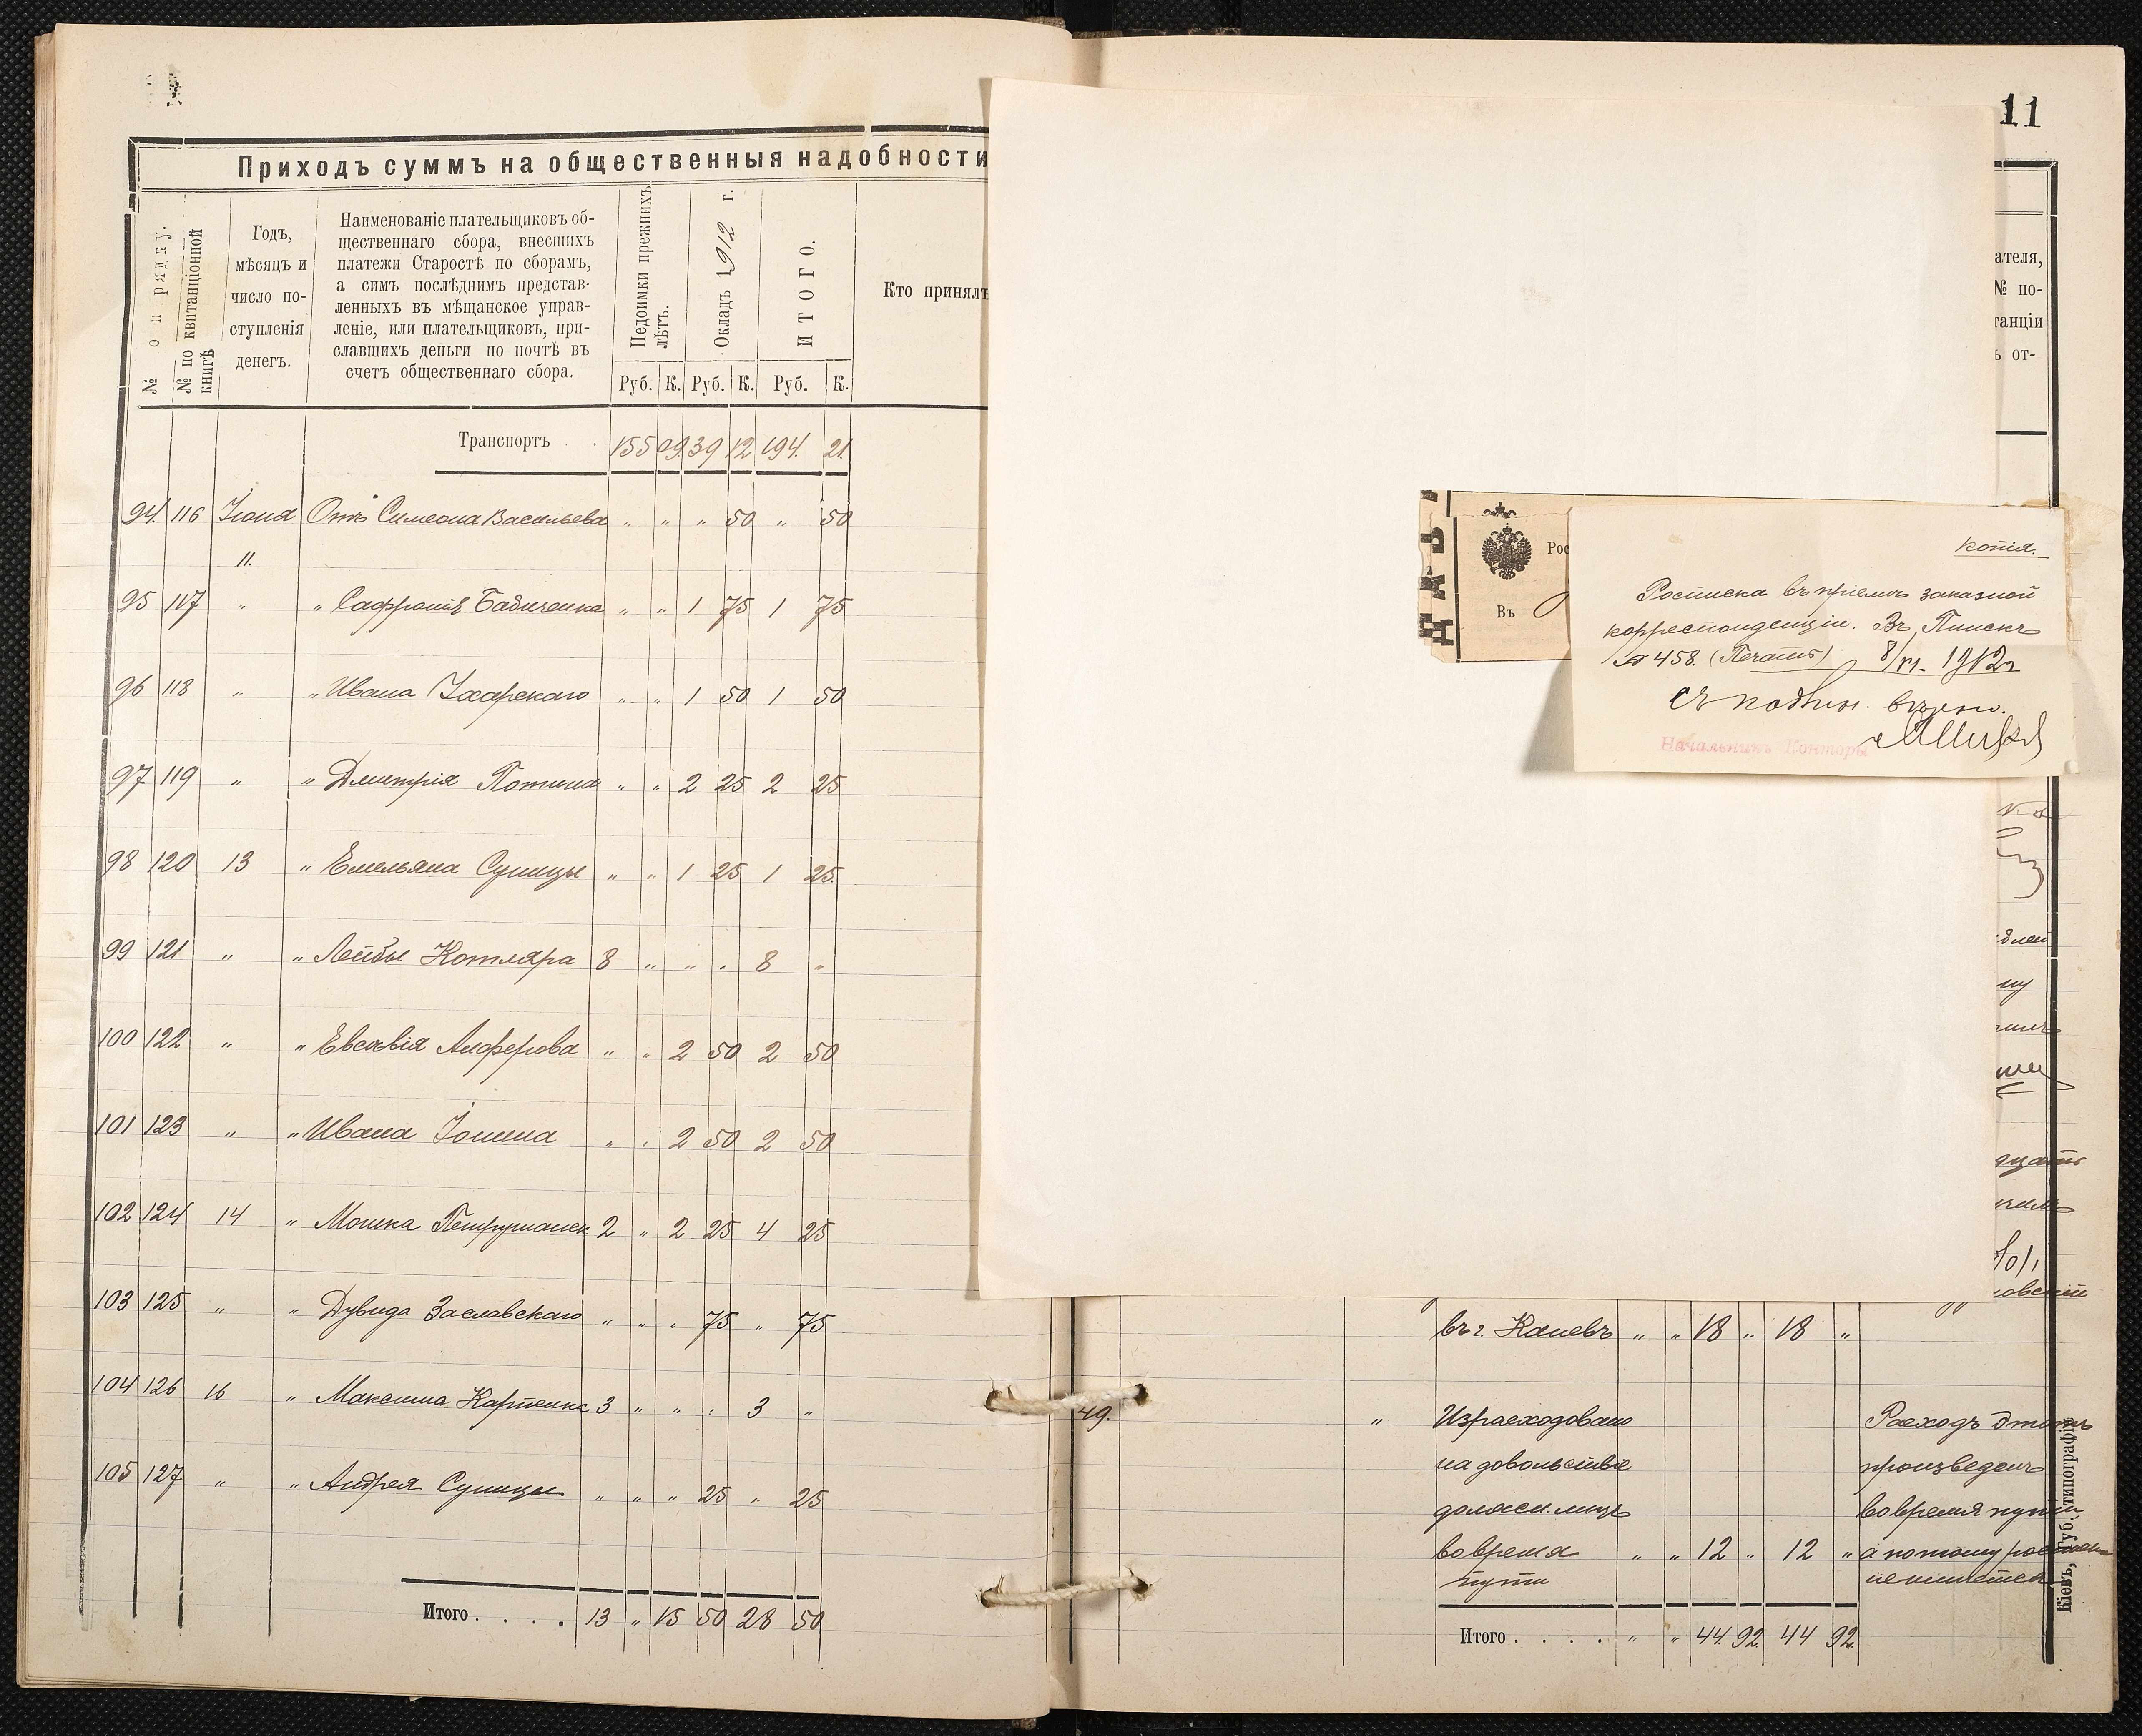 11
Приходъ суммъ на общественныя надобности
№ по ряду.
№ по квитанціонной книгѣ
Годъ,
мѣсяцъ и
число по-
ступленія
денегъ.
Наименованіе плательщиковъ об-
щественнаго сбора, внесшихъ
платежи Старостѣ по сборамъ,
а симъ послѣднимъ представ-
ленныхъ въ мѣщанское управ-
леніе, или плательщиковъ, при-
славшихъ деньги по почтѣ въ
счетъ общественнаго сбора.
Недоимки прежнихъ
лѣтъ.
Окладъ 1912 г.
ИТОГО.
Кто принялъ
Руб. К. Руб. К. Руб. К.
Транспортъ . . 155 09 39 12 194 21
94 116 Іюня Отъ Симеона Васильева " " " 50 " 50
11.
95 117 " " " " 1 75 1 75
96 118 " " Ивана " " 1 50 1 50
97 119 " " Дмитрія " " 2 25 2 25
98 120 13 " Емельяна Суницы " " 1 25 1 25
99 121 " " Лейбы Котляра 8 " " " 8 "
100 122 " " Евсевія Алферова " " 2 50 2 50
101 123 " " Ивана " " 2 50 2 50
102 124 14 " Мошка 2 " 2 25 4 25
103 125 " " Дувида Заславскаго " " " 75 " 75
104 126 16 " Максима Карпенка 3 " " " 3 "
105 127 " " Андрея Суницы " " " 25 " 25
Итого . . . . 13 " 15 50 28 50
ателя,
№ по-
танціи
ъ от-
Рос
Въ
Копія.
Росписка въ пріемѣ заказной
корреспонденціи. Въ Пинскъ
№ 458. (Печать) 8/VI - 1912 г
Съ подлин. вѣрно.
Начальникъ Конторы
въ г. Каневъ " " 18 " 18 "
49. " Израсходовано Расходъ этотъ
на довольствіе произведенъ
должн. лицъ во время пути
во время " " 12 " 12 " а потому
пути
Итого . . . . " " 44 92 44 92
Кіевъ, Губ. типографія